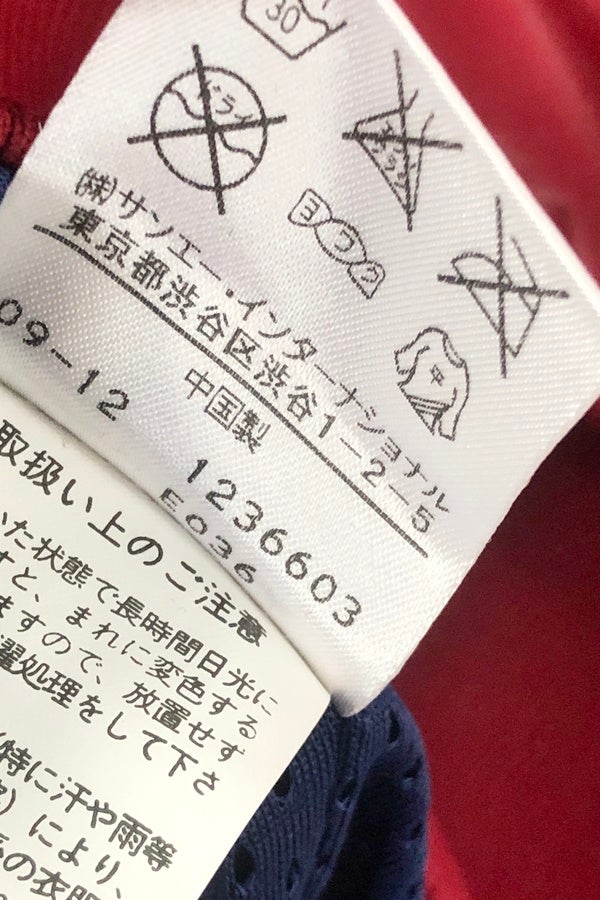 30
ドライ
ヨワク
(株)サンエー・インターナショナル
東京都渋谷区渋谷1-2-5
中国製
09-12
1236603
E036
取扱い上のご注意
いた状態で長時間日光に
すと、まれに変色する
ますので、放置せず
濯処理をして下さ
(特に汗や雨等
)により、
の衣服